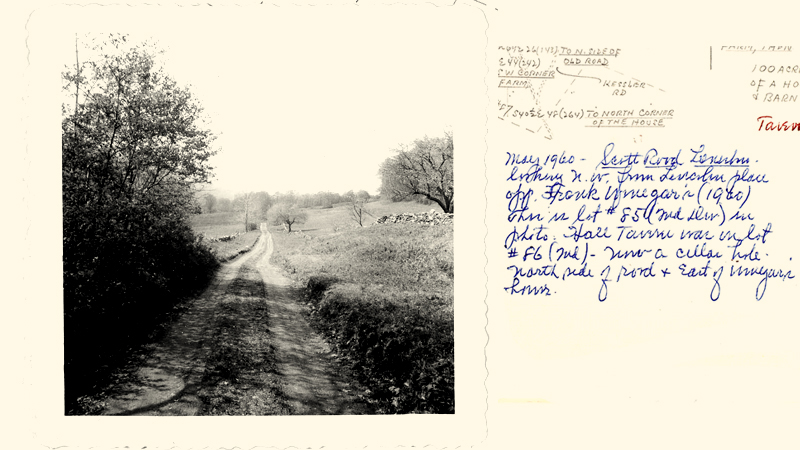 TO N. SIDE OF
OLD ROAD
S.W. CORNER
FARM
KESSLER
RD
TO NORTH CORNER
OF THE HOUSE
100 ACRE
OF A HO
& BARN
Tavern
May 1960 - Scott Road
looking N.W. from Lincoln place
opp. Frank Vinegar's (1960)
This is lot #85 (2nd Div) in
photo. Hall Tavern was in lot
#86 (2nd) - now a cellar hole.
North side of road & East of Vinegar's
house.